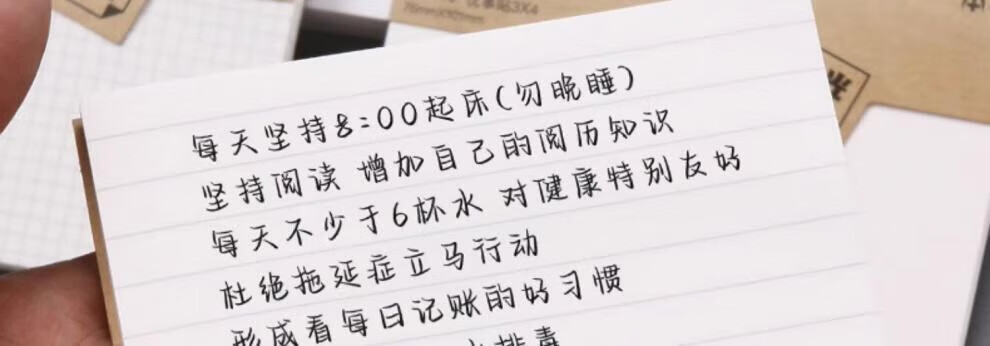 每天坚持8:00起床(勿晚睡)
坚持阅读 增加自己的阅历知识
每天不少于6杯水 对健康特别友好
杜绝拖延症立马行动
形成看每日记账的好习惯
排毒